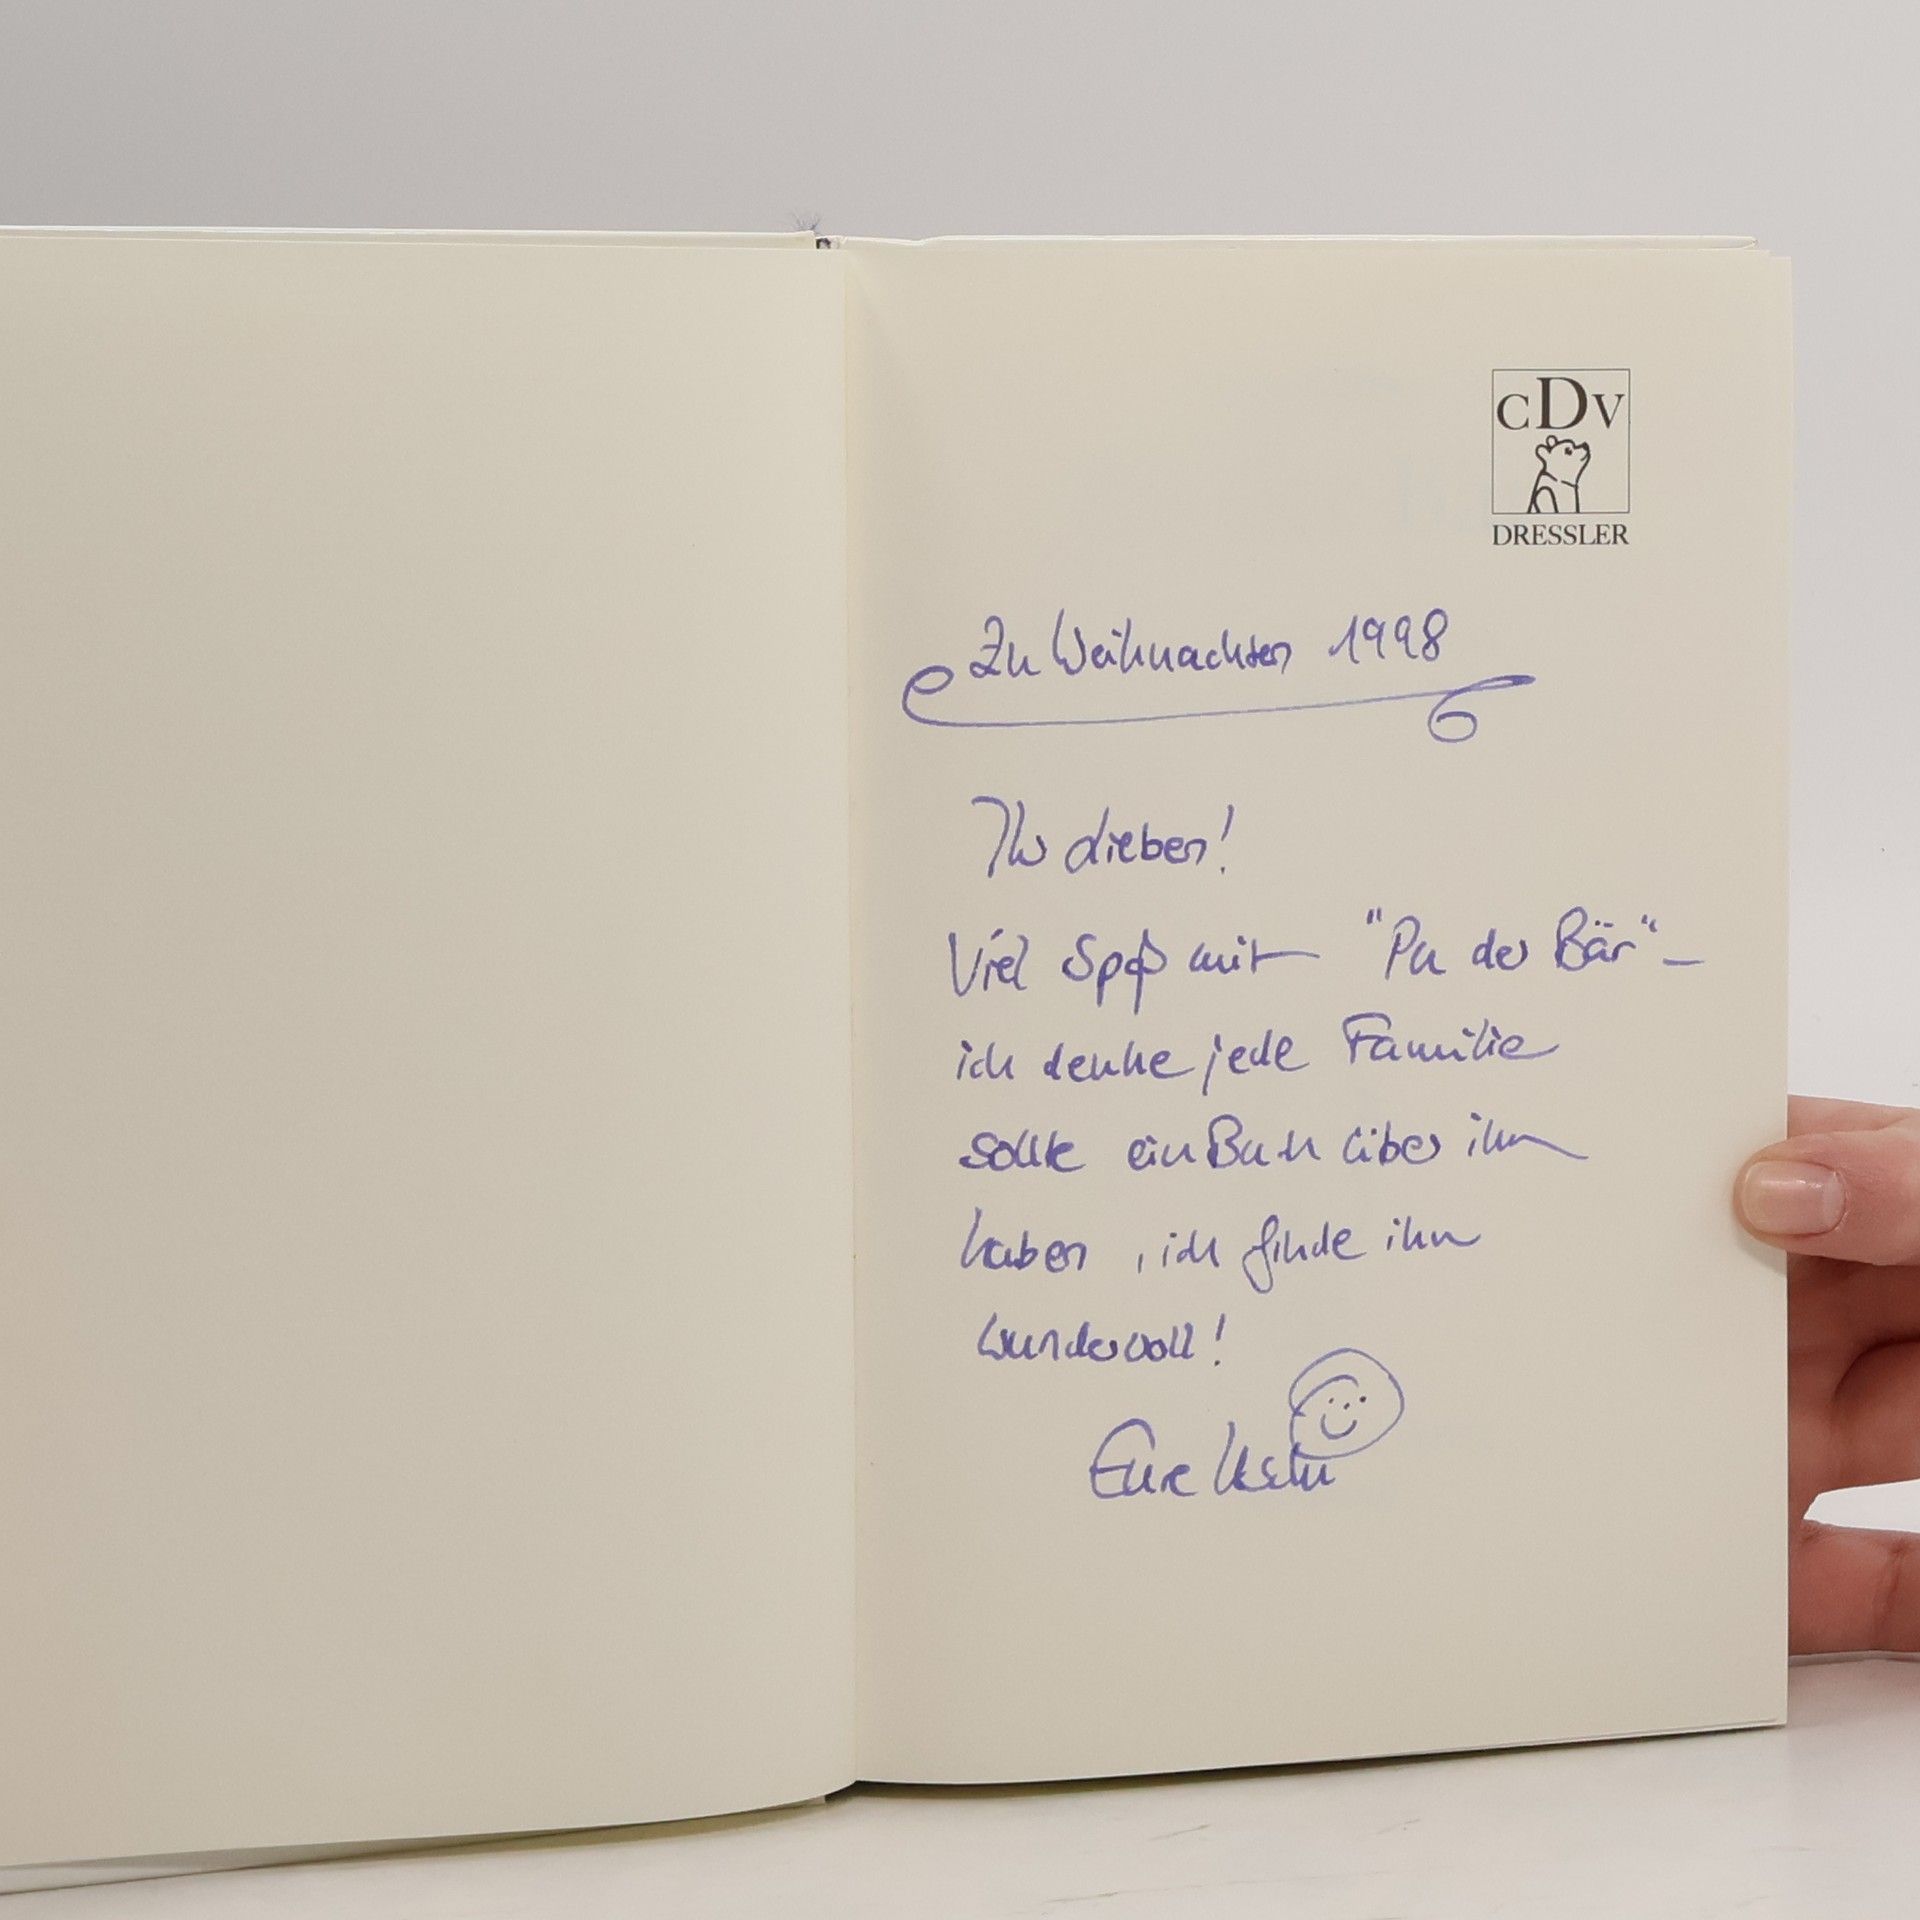 CDV
DRESSLER
Zu Weihnachten 1998
Ihr Lieben!
Viel Spaß mit "Pu der Bär" –
ich denke jede Familie
sollte ein Buch über ihn
haben, ich finde ihn
wundervoll!
Eure